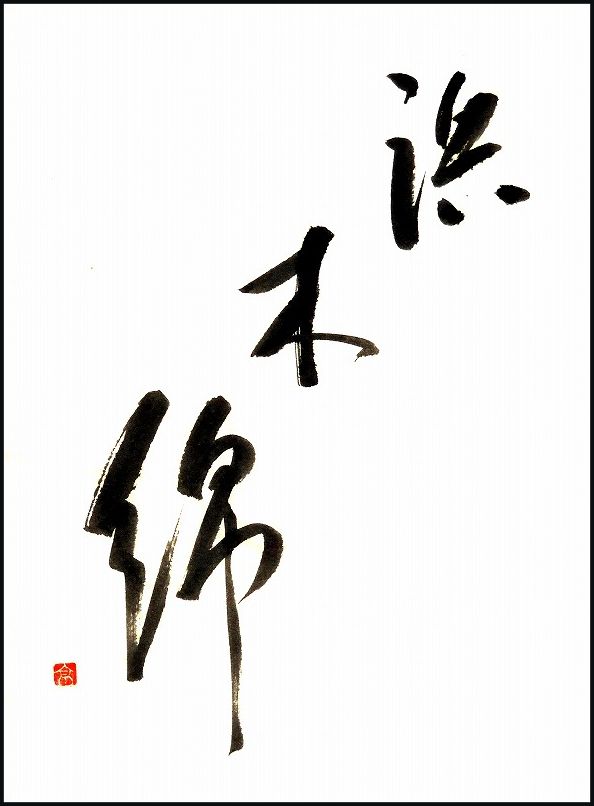 浜木綿